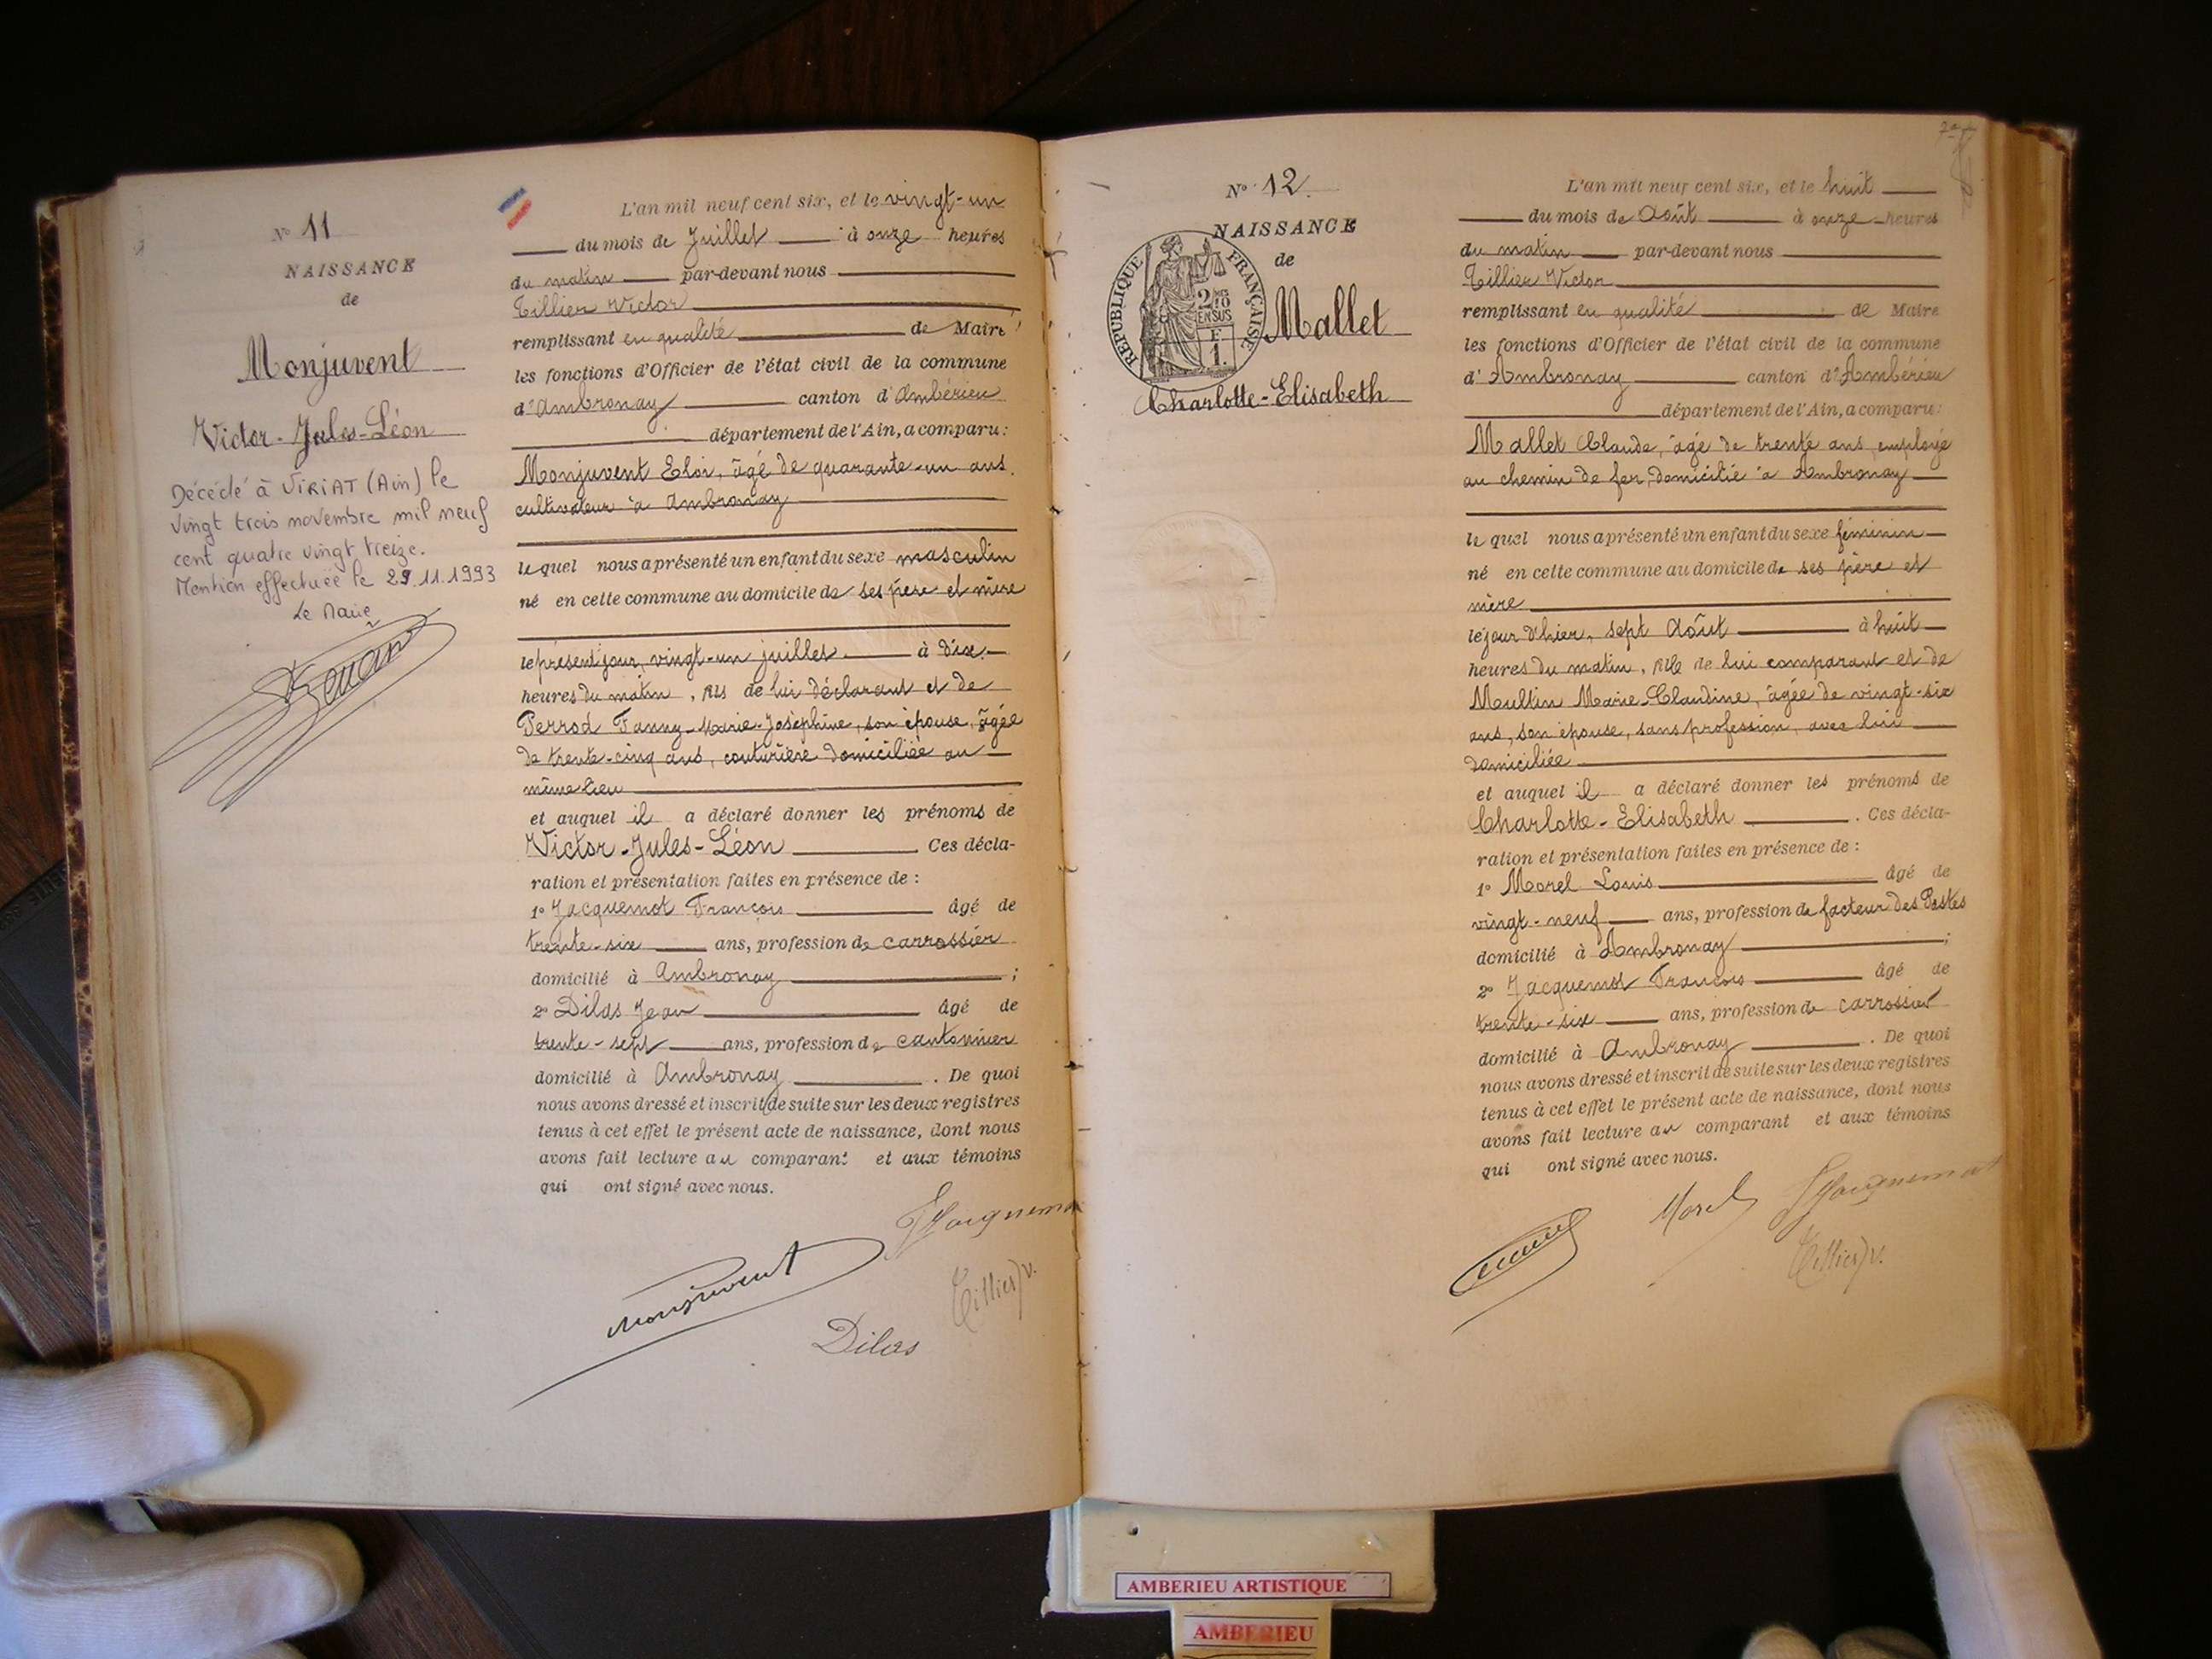 Nº 11
NAISSANCE
de
Monjuvent
Victor-Jules-Léon
Décédé à VIRIAT (Ain) le
vingt trois novembre mil neuf
cent quatre vingt treize.
Mention effectuée le 29.11.1993
Le Maire
L'an mil neuf cent six, et le vingt-un
du mois de Juillet à onze heures
du matin par-devant nous
Tillier Victor
remplissant en qualité de Maire
les fonctions d'Officier de l'état civil de la commune
d'Ambronay canton d'Ambérieu
département de l'Ain, a comparu:
Monjuvent Eloi, âgé de quarante-un ans
cultivateur à Ambronay
lequel nous a présenté un enfant du sexe masculin
né en cette commune au domicile de ses père et mère
le présent jour, vingt-un juillet à dix
heures du matin, fils de lui déclarant et de
Perrod Fanny-Marie-Joséphine, son épouse, âgée
de trente-cinq ans, couturière domiciliée au
même lieu
et auquel il a déclaré donner les prénoms de
Victor-Jules-Léon Ces décla-
ration et présentation faites en présence de :
1º Jacquemot François âgé de
trente-six ans, profession de carrossier
domicilié à Ambronay ;
2º Dilas Jean âgé de
trente-sept ans, profession de cantonnier
domicilié à Ambronay . De quoi
nous avons dressé et inscrit de suite sur les deux registres
tenus à cet effet le présent acte de naissance, dont nous
avons fait lecture au comparant et aux témoins
qui ont signé avec nous.
Jacquemo
Monjuvent
Tillier V.
Dilas
Nº 12
NAISSANCE
de
RÉPUBLIQUE FRANÇAISE
2/10 EN SUS
F
1.
Mallet
Charlotte-Elisabeth
L'an mil neuf cent six, et le huit
du mois de Août à onze heures
du matin par-devant nous
Tillier Victor
remplissant en qualité de Maire
les fonctions d'Officier de l'état civil de la commune
d'Ambronay canton d'Ambérieu
département de l'Ain, a comparu:
Mallet Claude, âgé de trente ans employé
au chemin de fer, domicilié à Ambronay
lequel nous a présenté un enfant du sexe féminin
né en cette commune au domicile de ses père et
mère
le jour d'hier, sept Août à huit
heures du matin, fille de lui comparant et de
Marie-Claudine, âgée de vingt-six
ans, son épouse, sans profession, avec lui
domiciliée
et auquel il a déclaré donner les prénoms de
Charlotte-Elisabeth . Ces décla-
ration et présentation faites en présence de :
1º Morel Louis âgé de
vingt-neuf ans, profession de facteur des Postes
domicilié à Ambronay ;
2º Jacquemot François âgé de
trente-six ans, profession de carrossier
domicilié à Ambronay . De quoi
nous avons dressé et inscrit de suite sur les deux registres
tenus à cet effet le présent acte de naissance, dont nous
avons fait lecture au comparant et aux témoins
qui ont signé avec nous.
Morel
Jacquemot
Tillier V.
AMBERIEU ARTISTIQUE
AMBERIEU